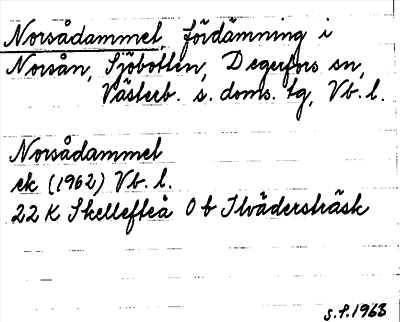 Norsådammet, fördämning i
Norsån, Sjöbotten, Degerfors sn,
Västerb. s. doms. tg, Vb. l.
Norsådammet
ek (1962) Vb. l.
22 K Skellefteå 0 b Ilvädersträsk
S.F. 1963